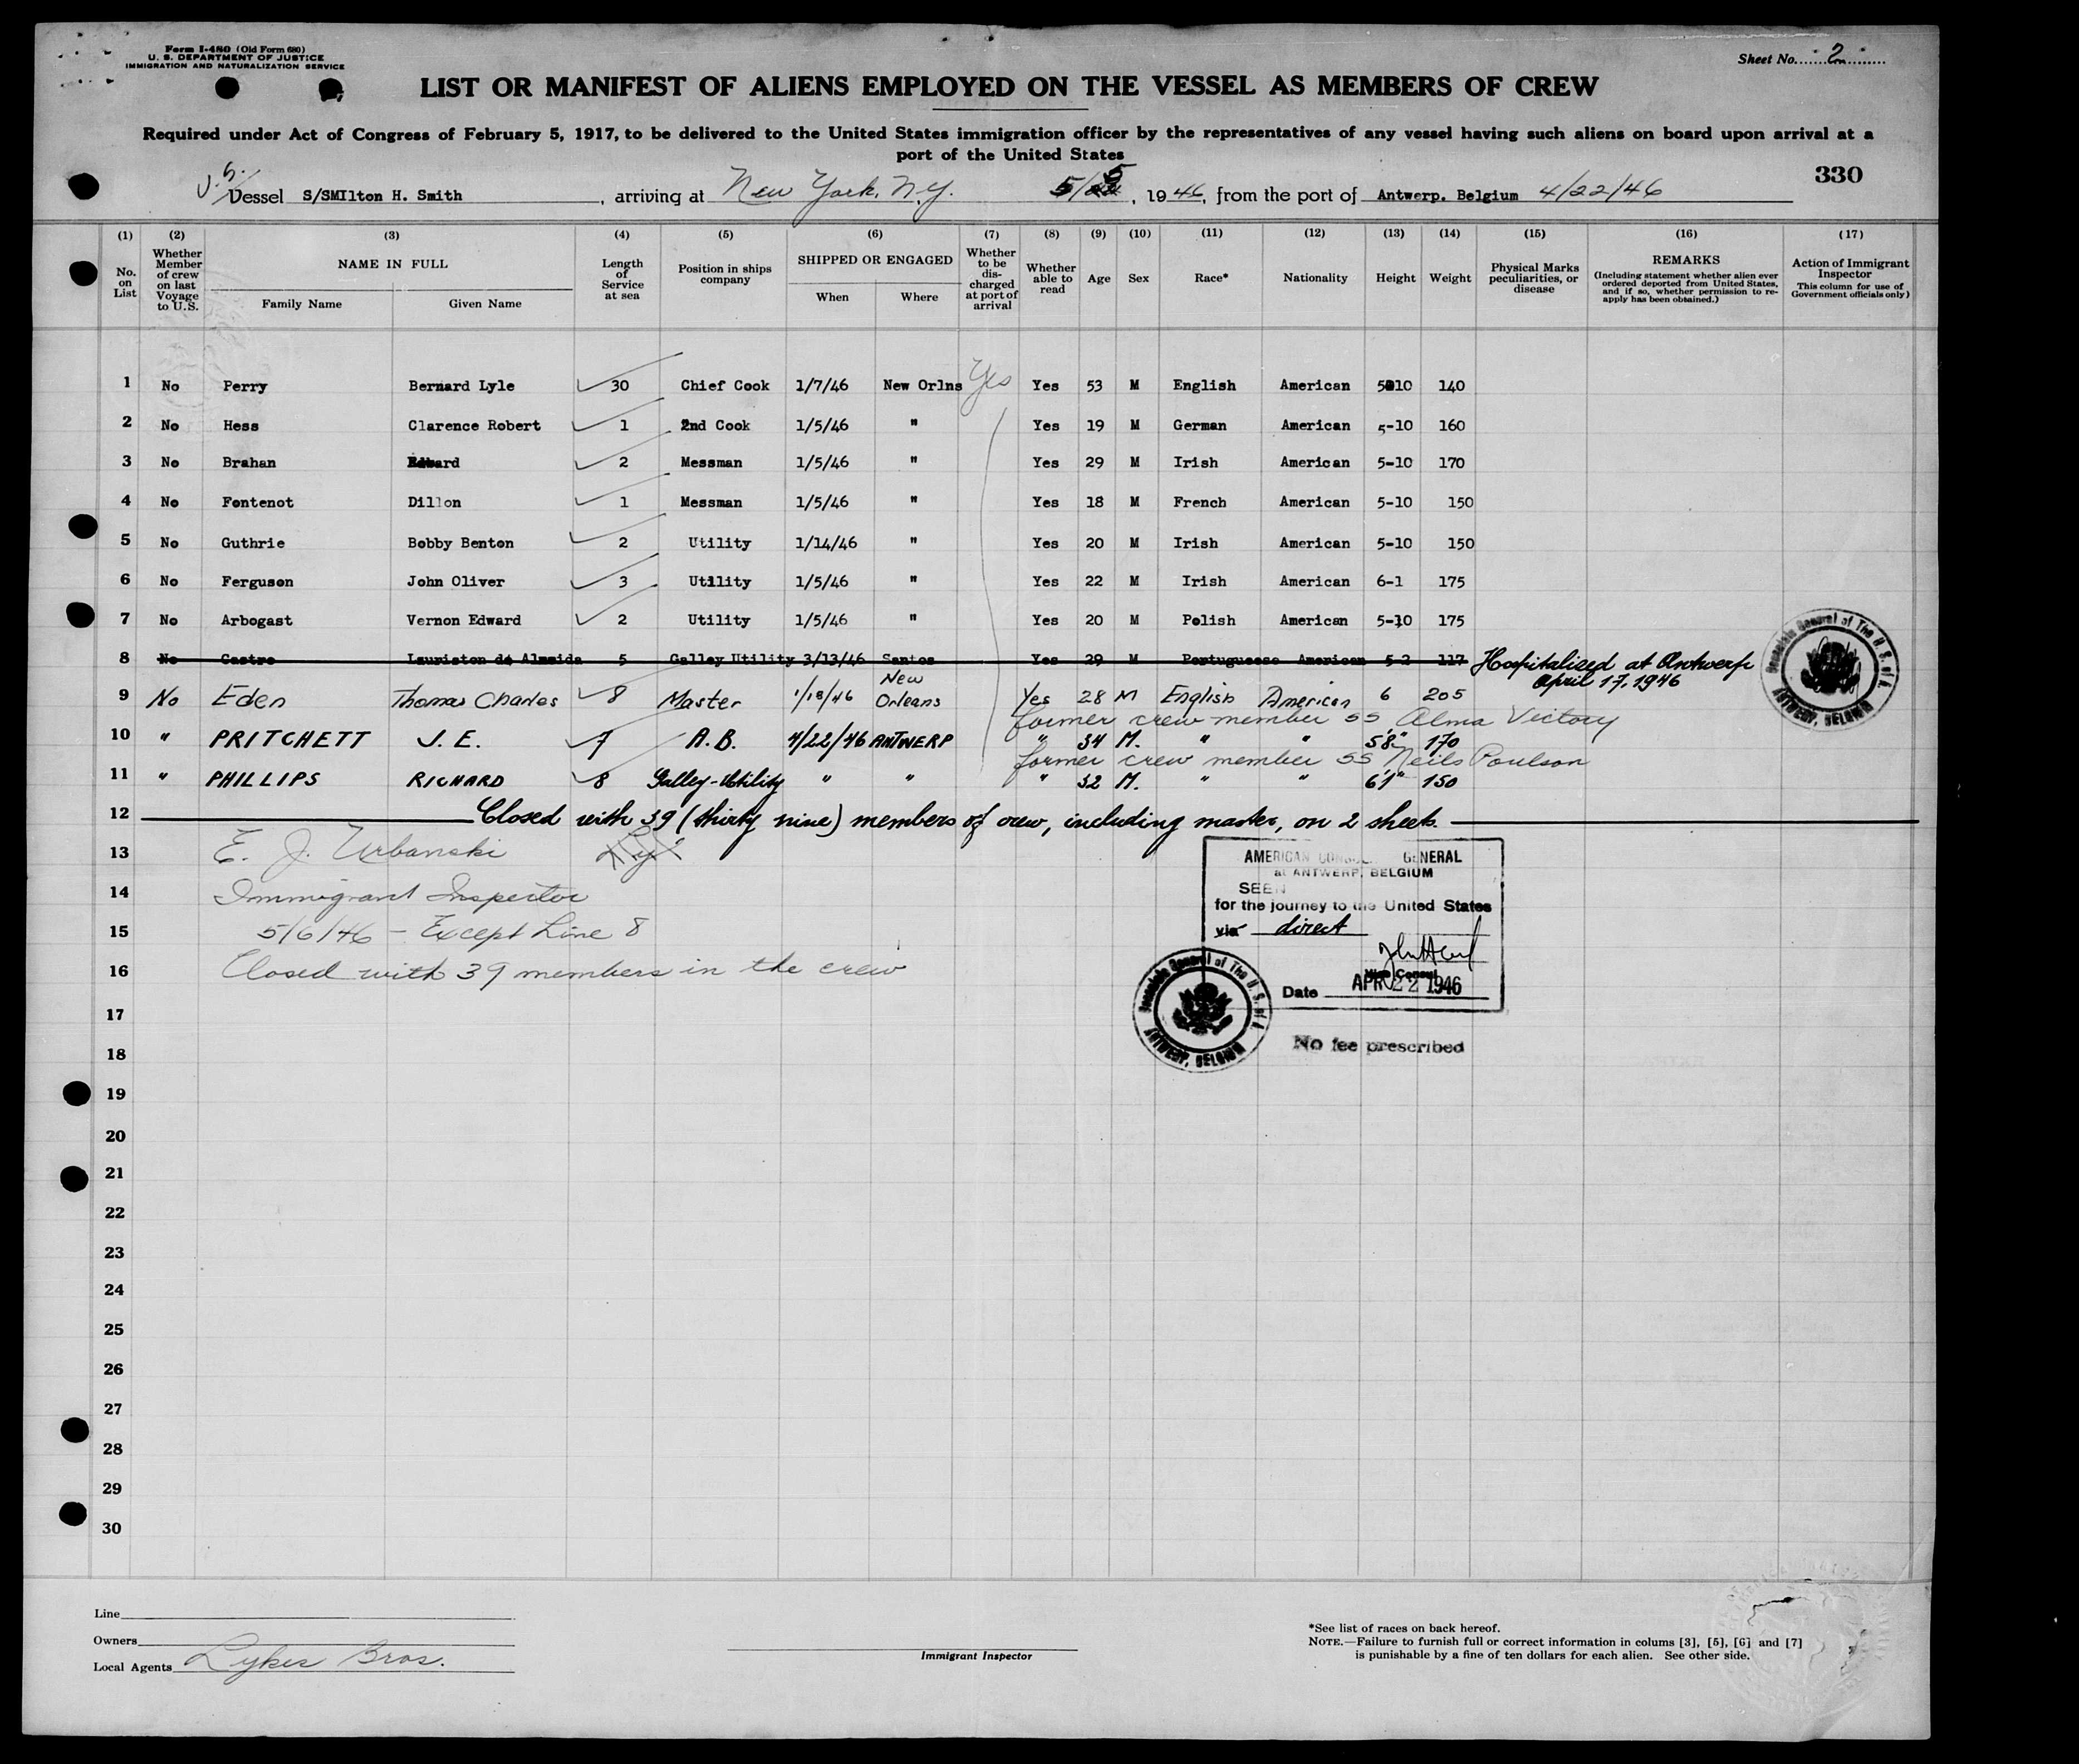 Form I-480 (Old Form 680)
U. S. DEPARTMENT OF JUSTICE
IMMIGRATION AND NATURALIZATION SERVICE
Sheet No. 2
LIST OR MANIFEST OF ALIENS EMPLOYED ON THE VESSEL AS MEMBERS OF CREW
Required under Act of Congress of February 5, 1917, to be delivered to the United States immigration officer by the representatives of any vessel having such aliens on board upon arrival at a
port of the United States
330
U.S. Vessel S/SMIlton H. Smith, arriving at New York, N.Y. 5/5, 1946, from the port of Antwerp. Belgium 4/22/46
(1) (2) (3) (4) (5) (6) (7) (8) (9) (10) (11) (12) (13) (14) (15) (16) (17)
No. on List
Whether Member of crew on last Voyage to U.S.
NAME IN FULL
Family Name Given Name
Length of Service at sea
Position in ships company
SHIPPED OR ENGAGED
When Where
Whether to be discharged at port of arrival
Whether able to read
Age
Sex
Race*
Nationality
Height
Weight
Physical Marks peculiarities, or disease
REMARKS
(Including statement whether alien ever ordered deported from United States, and if so, whether permission to re-apply has been obtained.)
Action of Immigrant Inspector
This column for use of Government officials only)
1 No Perry Bernard Lyle 30 Chief Cook 1/7/46 New Orlns Yes Yes 53 M English American 5-10 140
2 No Hess Clarence Robert 1 2nd Cook 1/5/46 " Yes 19 M German American 5-10 160
3 No Brahan Edward 2 Messman 1/5/46 " Yes 29 M Irish American 5-10 170
4 No Fontenot Dillon 1 Messman 1/5/46 " Yes 18 M French American 5-10 150
5 No Guthrie Bobby Benton 2 Utility 1/14/46 " Yes 20 M Irish American 5-10 150
6 No Ferguson John Oliver 3 Utility 1/5/46 " Yes 22 M Irish American 6-1 175
7 No Arbogast Vernon Edward 2 Utility 1/5/46 " Yes 20 M Polish American 5-10 175
8 No Castro Lauriston de Almeida 5 Galley Utility 3/13/46 Santos Yes 29 M Portuguese American 5-2 117 Hospitalized at Antwerp
April 17, 1946
9 No Eden Thomas Charles 8 Master 1/18/46 New Orleans Yes 28 M English American 6 205
former crew member SS Alma Victory
10 " PRITCHETT J. E. 7 A.B. 4/22/46 ANTWERP " 34 M. " " 5'8" 170
former crew member SS Neils Poulson
11 " PHILLIPS RICHARD 8 Galley-Utility " " " 32 M. " " 6'1" 150
12 Closed with 39 (thirty nine) members of crew, including master, on 2 sheets.
13 E. J. Urbanski
14 Immigrant Inspector
15 5/6/46 - Except Line 8
16 Closed with 39 members in the crew
17
18
19
20
21
22
23
24
25
26
27
28
29
30
Consulate General of The U. S. of A.
ANTWERP, BELGIUM
AMERICAN CONSULATE GENERAL
at ANTWERP, BELGIUM
SEEN
for the journey to the United States
via direct
Vice Consul
Date APR 22 1946
Consulate General of The U. S. of A.
ANTWERP, BELGIUM
No fee prescribed
Line
Owners
Local Agents Lykes Bros.
Immigrant Inspector
*See list of races on back hereof.
NOTE.—Failure to furnish full or correct information in colums [3], [5], [6] and [7]
is punishable by a fine of ten dollars for each alien. See other side.